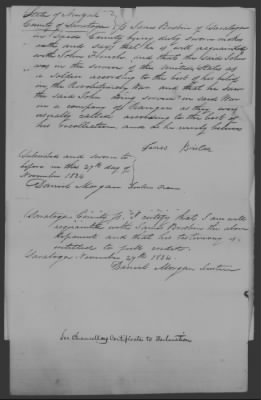 State of New York
County of Saratoga } James Brisbin of Saratoga
in said County being duly sworn makes
oath and says that he is well acquainted
with John and that the said John
was in the service of the United States as
a soldier according to the best of his belief
in the Revolutionary War and that he saw
the said John doing service in said War
in a company of rangers as they were
usually called according to the best of
his recollection, and as he verily believes
James Brisbin
Subscribed and sworn to
before me this 29th day of
November 1834
Daniel Morgan
Saratoga County ss. I certify that I am well
acquainted with James Brisbin the above
deponent and that his testimony is
entitled to full credit.
Saratoga November 29th 1834.
Daniel Morgan
See Chancellors Certificate to declaration